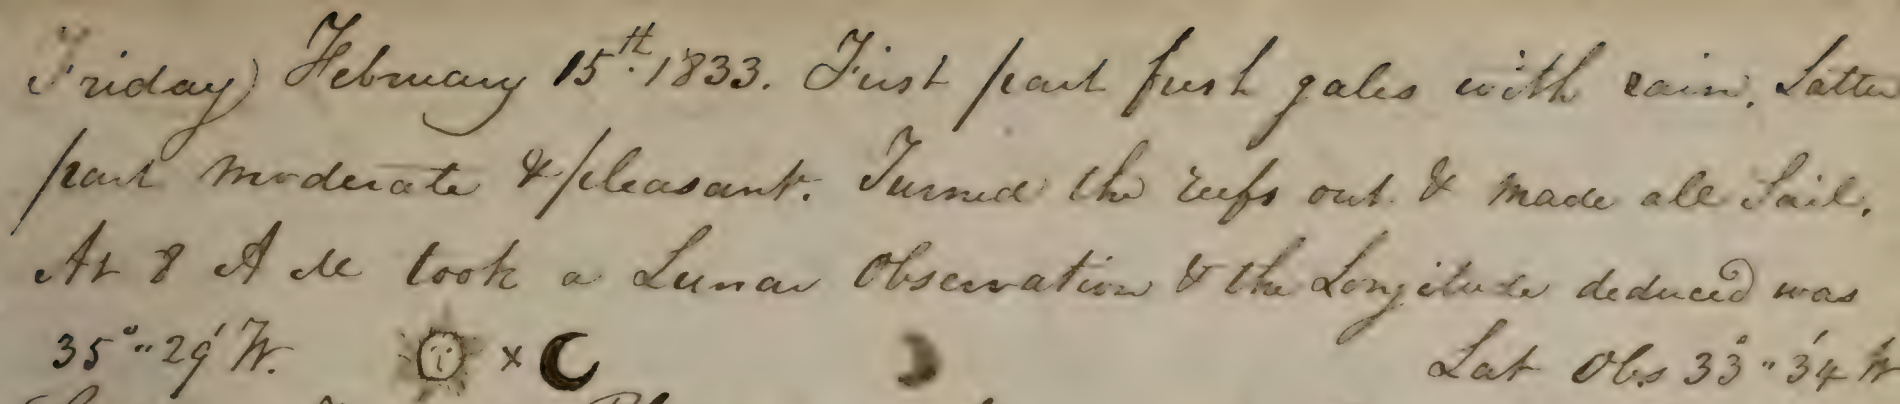 Friday February 15th. 1833. First part fresh gales with rain. Latter
part moderate & pleasant. Turned the reefs out & made all Sail.
At 8 A M took a Lunar Observation & the Longitude deduced was
35°"29' W. Lat Obs 33°"34'